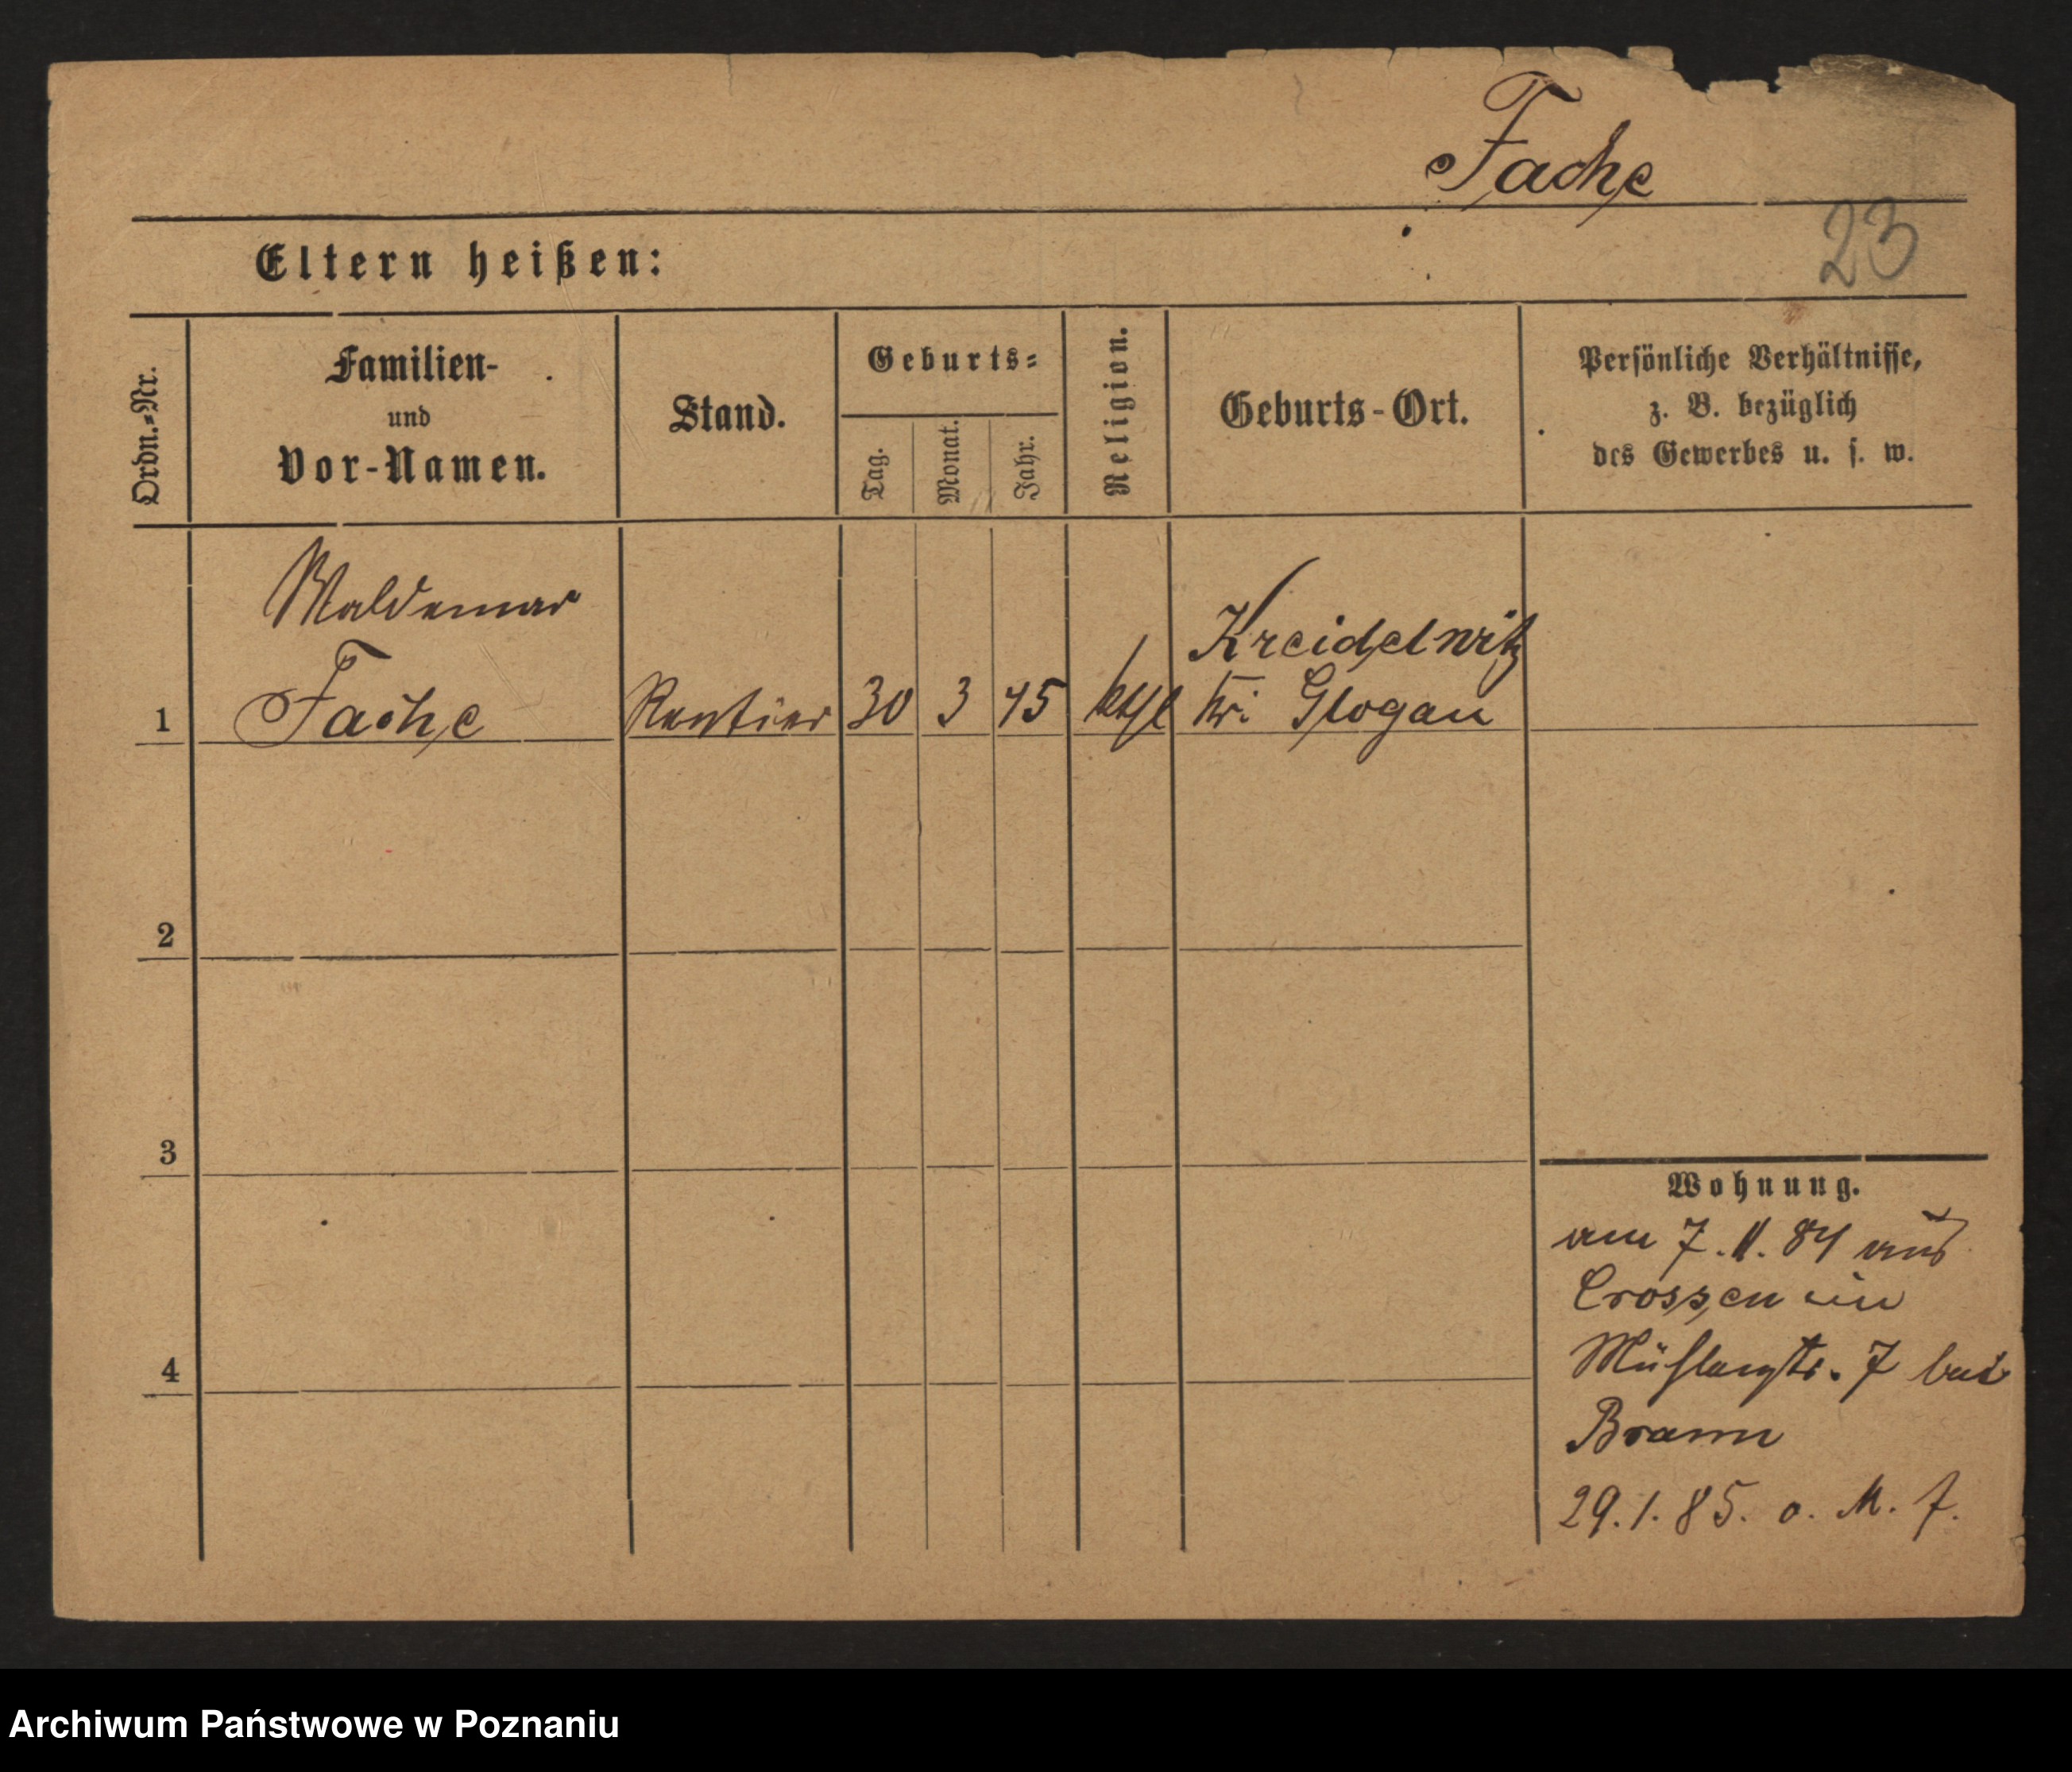 Fache
23
Eltern heißen:
Ordn.-Nr.
Familien-
und
Vor-Namen.
Stand.
Geburts-
Tag.
Monat.
Jahr.
Religion.
Geburts-Ort.
Persönliche Verhältnisse,
z. B. bezüglich
des Gewerbes u. s. w.
Waldemar
Fache
1
Rentier
30
3
45
kthl
Kreidelwitz
Kr: Glogau
2
3
4
Wohnung.
am 7. 11. 84 aus
Crossen in
Mühlenstr. 7 bei
Braun
29. 1. 85. o. M. f.
Archiwum Państwowe w Poznaniu